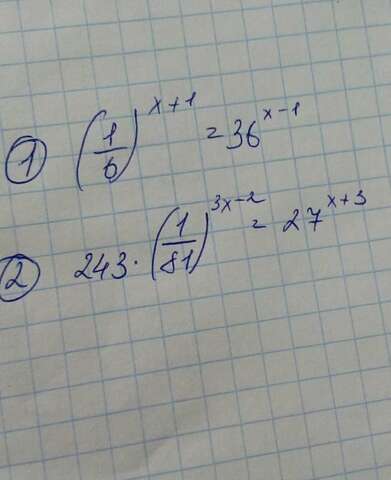 ① (1/6)^(x+1) = 36^(x-1)
② 243 · (1/81)^(3x-2) = 27^(x+3)